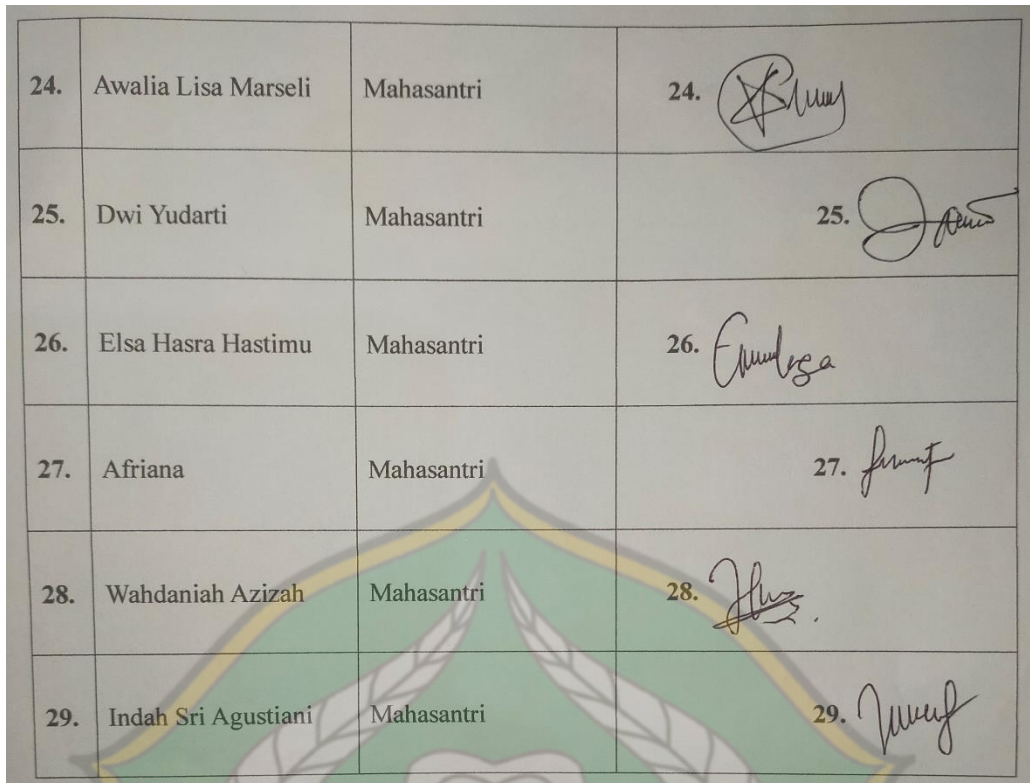 24. Awalia Lisa Marseli Mahasantri 24.
25. Dwi Yudarti Mahasantri 25.
26. Elsa Hasra Hastimu Mahasantri 26.
27. Afriana Mahasantri 27.
28. Wahdaniah Azizah Mahasantri 28.
29. Indah Sri Agustiani Mahasantri 29.